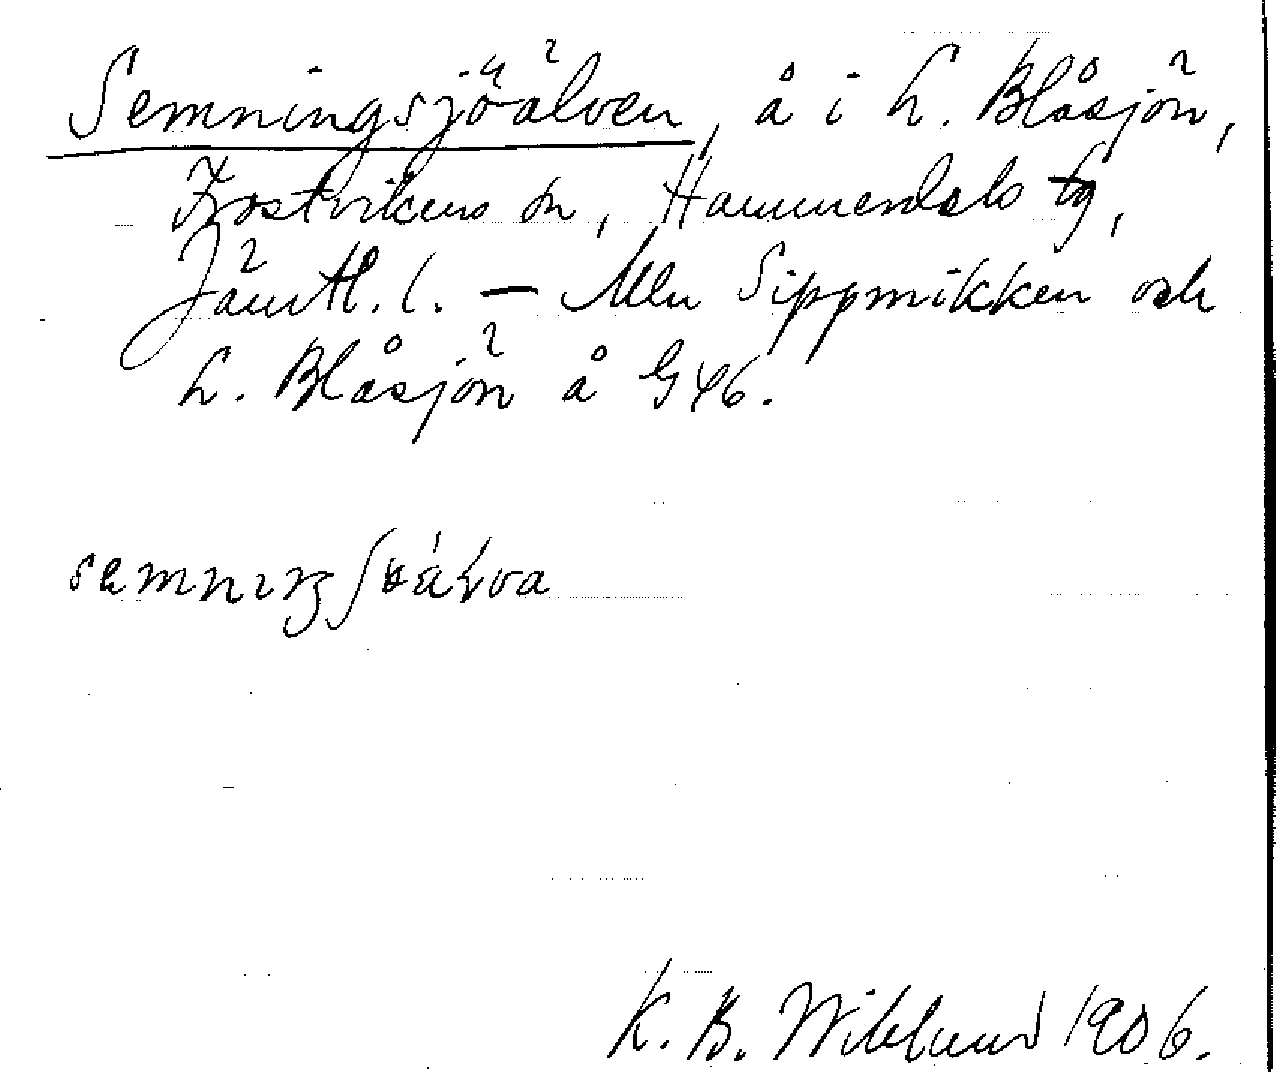 Semningsjöälven, å i L. Blåsjön,
Frostvikens sn, Hammerdals tg,
Jämtl. l. — Mln Sippmikken och
L. Blåsjön å G46.
K. B. Wiklund 1906.